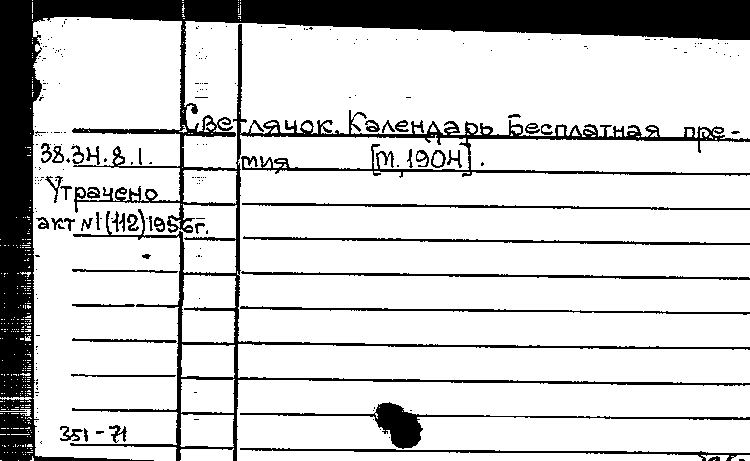 Светлячок. Календарь. Бесплатная пре-
38.34.8.1. мия [М., 1904].
Утрачено
акт №1 (112) 1956г.
351-71